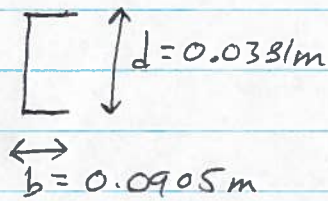 d=0.0381m
b=0.0905m